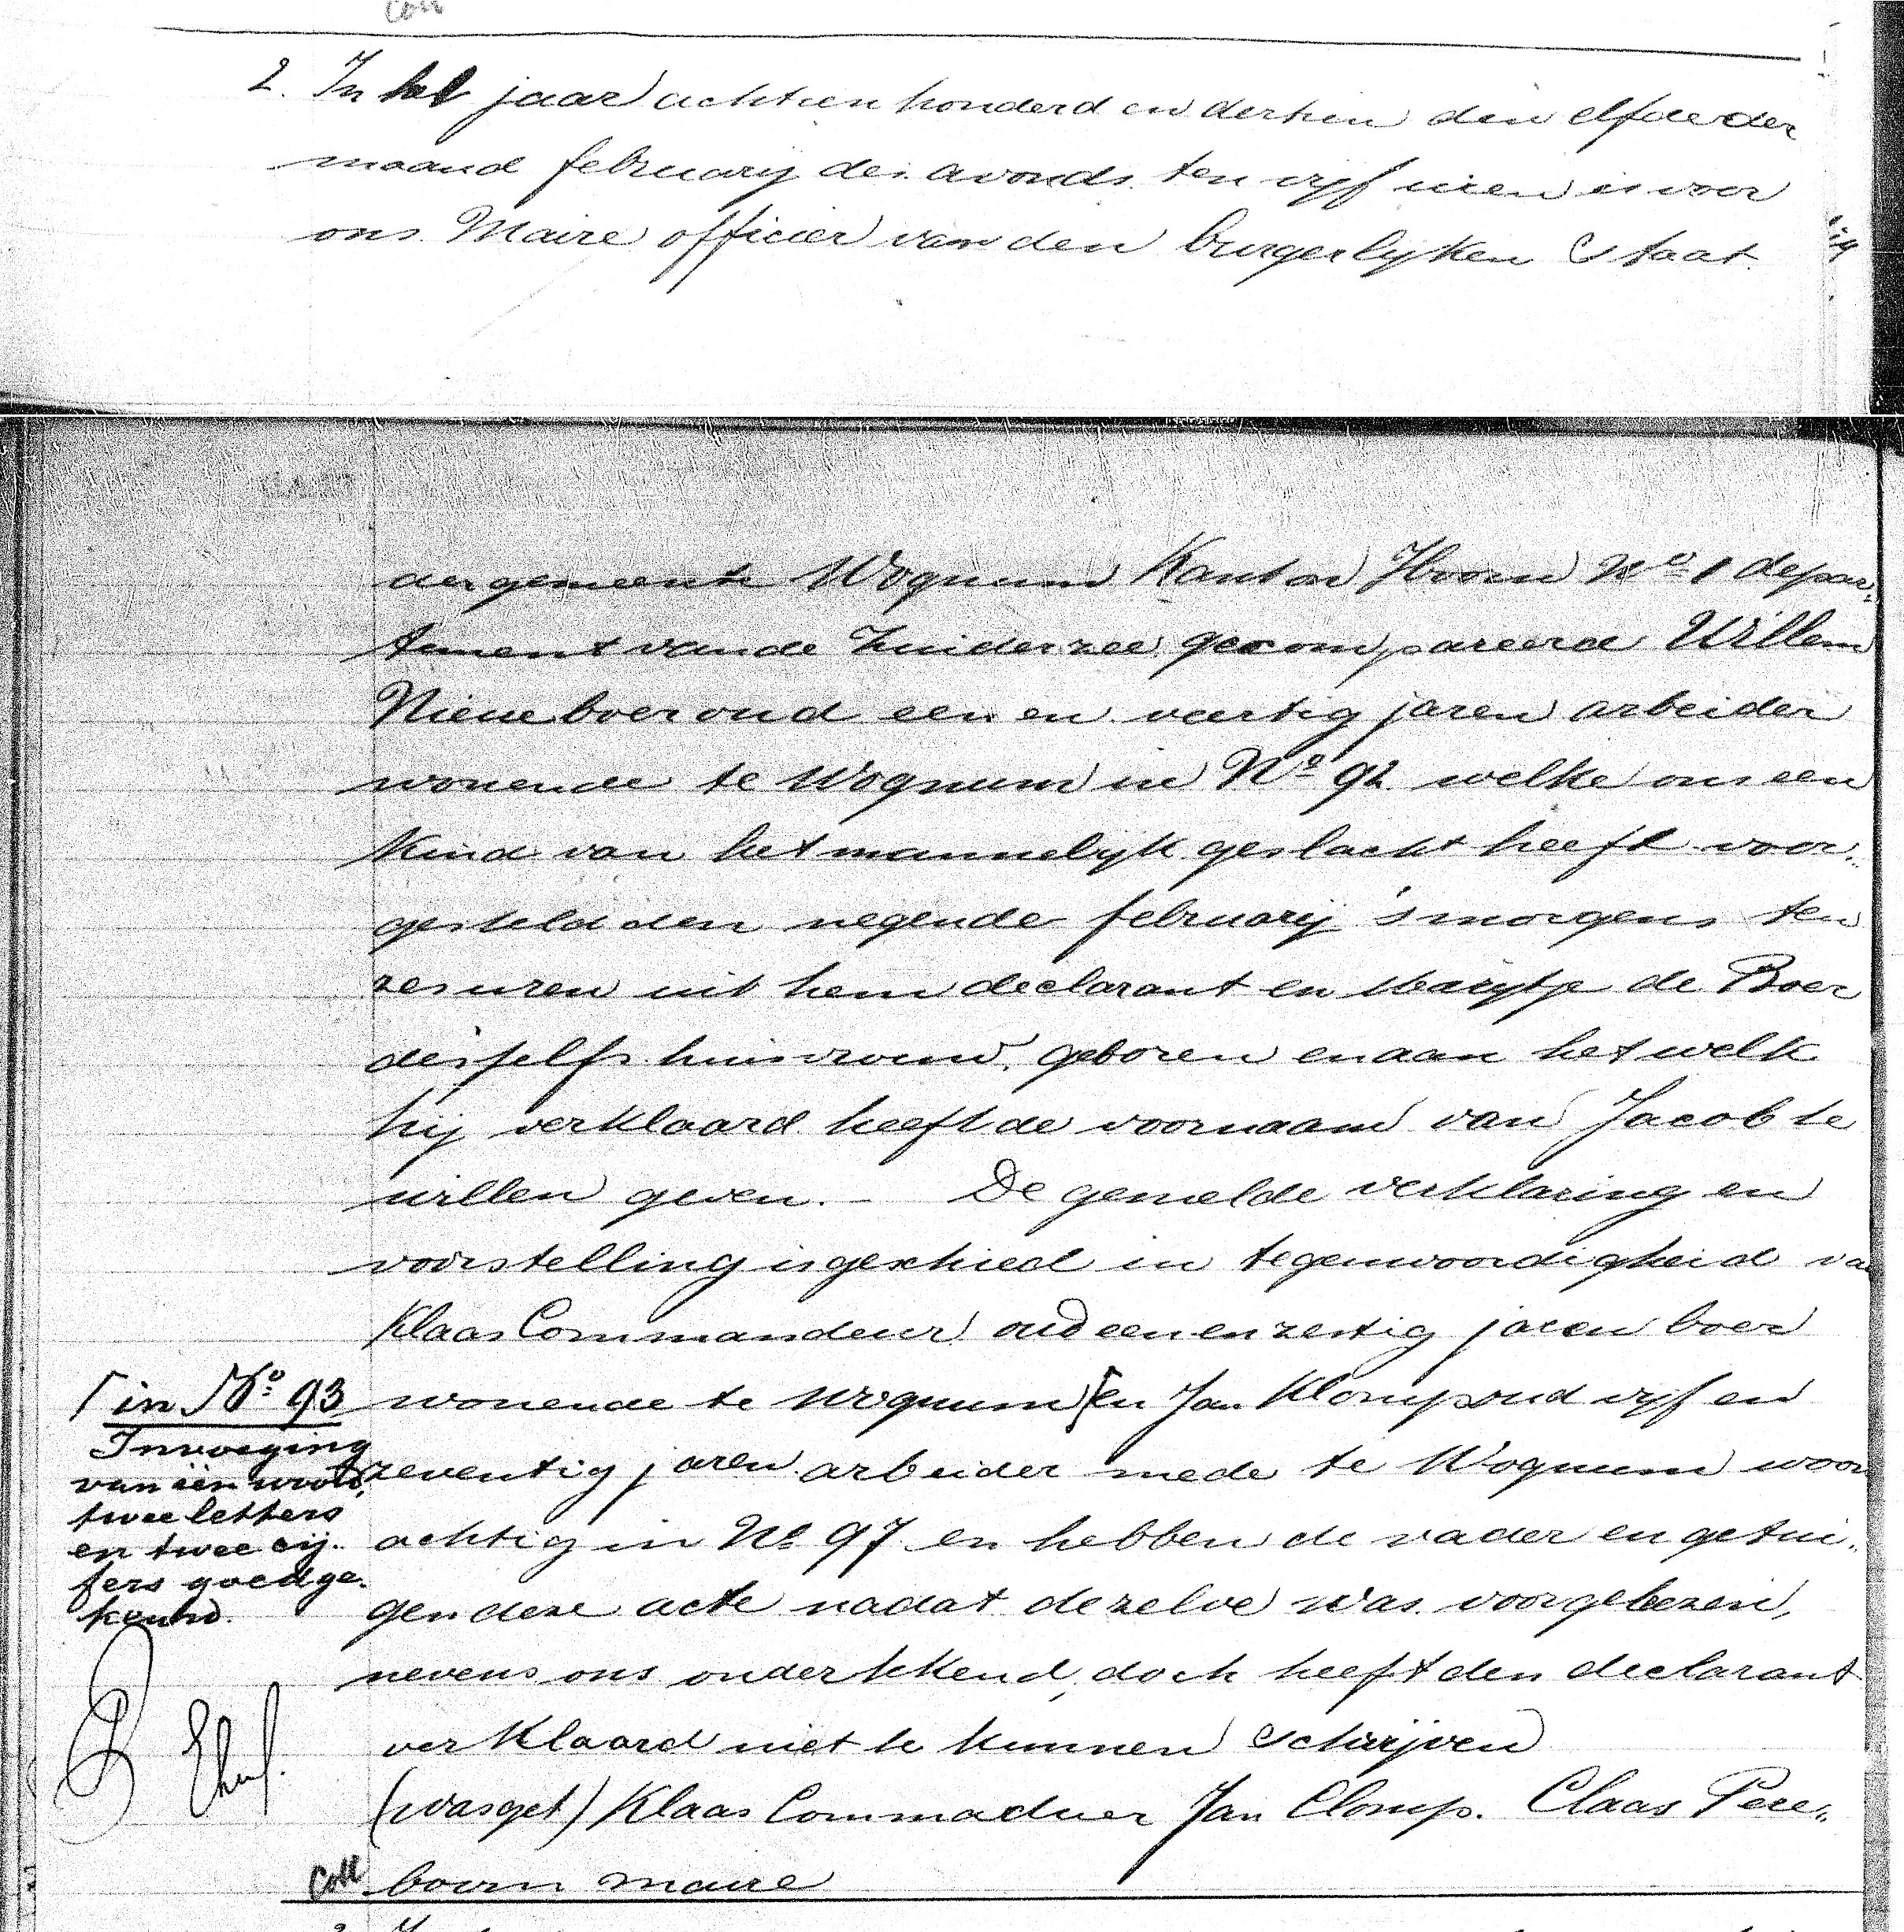 Coll
2. In het jaar achttien honderd en dertien den elfde der
maand februarij des avonds ten vijf uren is voor
ons Maire officier van den burgerlijken Staat
der gemeente Wognum Kanton Hoorn No 1 depar„
tement van de Zuiderzee gecompareerd Willem
Nieuweboer oud een en veertig jaren arbeider
wonende te Wognum in No 92 welke ons een
kind van het mannelijk geslacht heeft voor„
gesteld den negende februarij 's morgens ten
zes uren uit hem declarant en Marijtje de Boer
desselfs huisvrouw, geboren en aan het welk
hij verklaard heeft de voornaam van Jacob te
willen geven. — De gemelde verklaring en
voorstelling is geschied in tegenwoordigheid van
Klaas Commandeur oud een en zestig jaren boer
wonende te Wognum ⌈ en Jan Klomp oud vijf en
zeventig jaren arbeider mede te Wognum woon
achtig in No 97 en hebben de vader en getui„
gen deze acte nadat dezelve was voorgelezen,
nevens ons ondertekend, doch heeft den declarant
verklaard niet te kunnen schrijven
(was get) Klaas Commaduer Jan Clomp. Claas Pere„
boom maire
Coll
⌈ in No 93
Invoeging
van één woord,
twee letters
en twee cij„
fers goedge„
keurd.